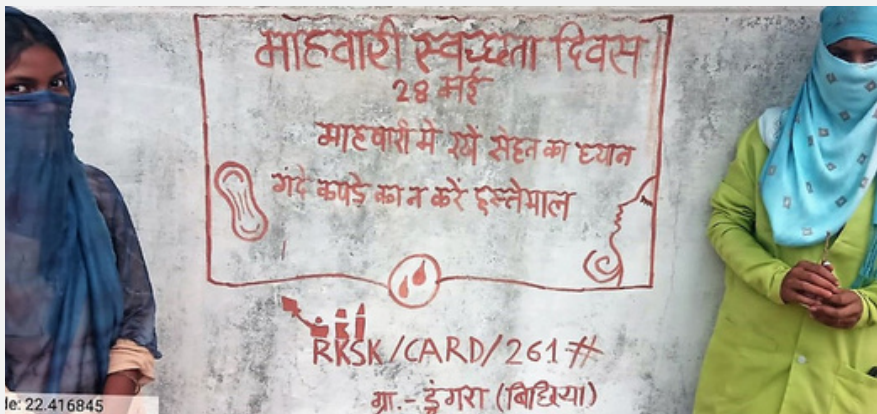 माहवारी स्वच्छता दिवस
28 मई
माहवारी मे रखे सेहत का ध्यान
गंदे कपड़े का न करें इस्तेमाल
RKSK/CARD/261#
ग्रा.- डुंगरा (बिछिया)
le: 22.416845